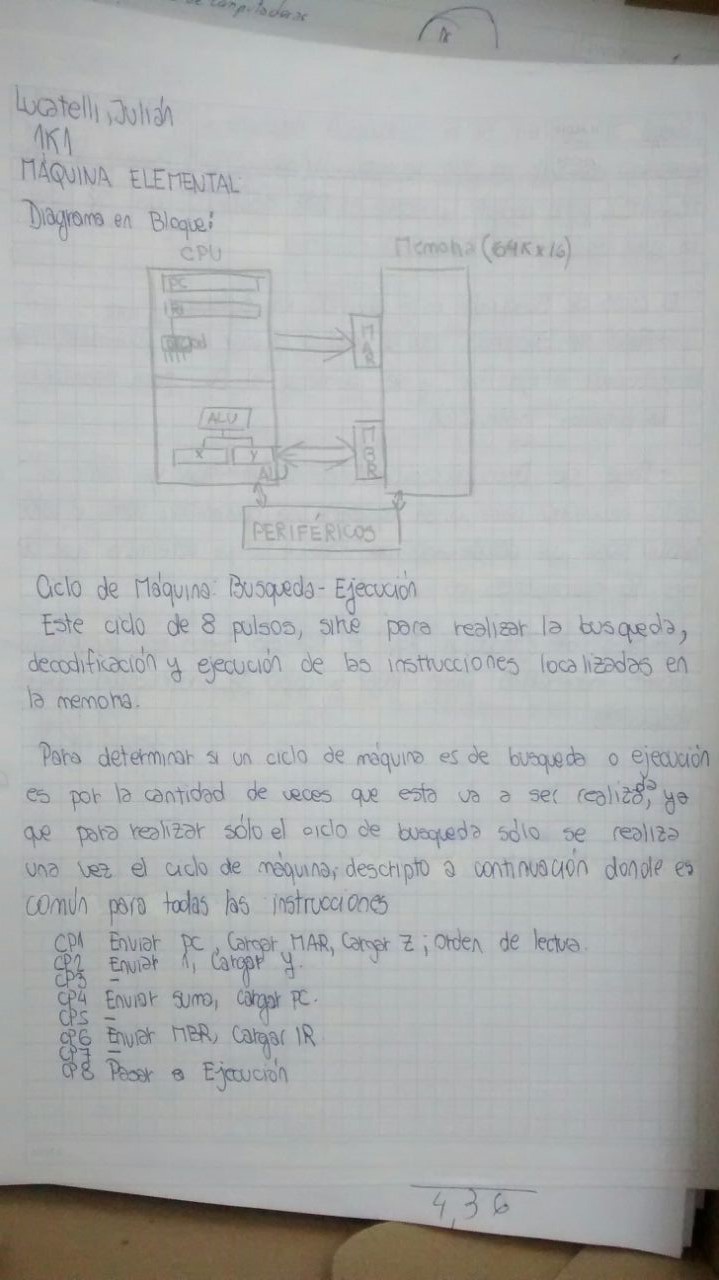 de computadoras
Lucatelli, Julián
1K1
MÁQUINA ELEMENTAL
Diagrama en Bloque:
CPU
Memoria (64K x 16)
PC
MAR
ALU
X Y
MBR
PERIFÉRICOS
Ciclo de Máquina: Busqueda - Ejecución
Este ciclo de 8 pulsos, sirve para realizar la busqueda,
decodificación y ejecución de las instrucciones localizadas en
la memoria.
Para determinar si un ciclo de máquina es de busqueda o ejecución
es por la cantidad de veces que esta va a ser realizada, ya
que para realizar sólo el ciclo de busqueda sólo se realiza
una vez el ciclo de máquina, descripto a continuación donde es
común para todas las instrucciones
CP1 Enviar PC, Cargar MAR, Cargar Z; Orden de lectura.
CP2 Enviar 1, Cargar Y.
CP3 -
CP4 Enviar suma, cargar PC.
CP5 -
CP6 Enviar MBR, Cargar IR
CP7 -
CP8 Pasar a Ejecución
4,36